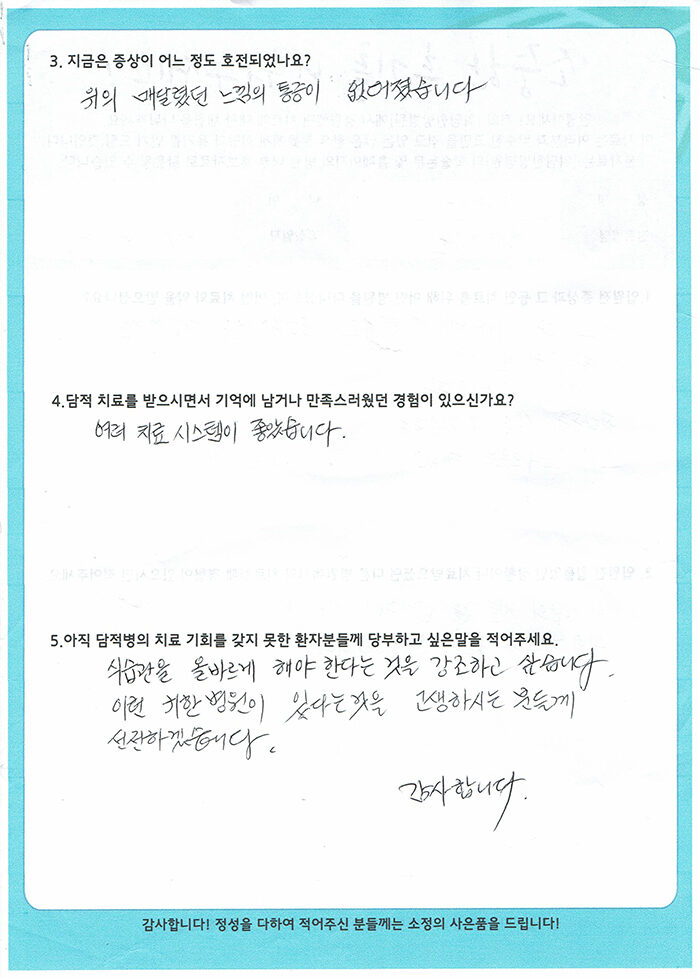 3. 지금은 증상이 어느 정도 호전되었나요?
위의 매달렸던 느낌의 통증이 없어졌습니다
4.담적 치료를 받으시면서 기억에 남거나 만족스러웠던 경험이 있으신가요?
여러 치료 시스템이 좋았습니다.
5.아직 담적병의 치료 기회를 갖지 못한 환자분들께 당부하고 싶은말을 적어주세요.
식습관을 올바르게 해야 한다는 것을 강조하고 싶습니다.
이런 귀한 병원이 있다는 것을 고생하시는 분들게
선전하겠습니다.
감사합니다.
감사합니다! 정성을 다하여 적어주신 분들께는 소정의 사은품을 드립니다!